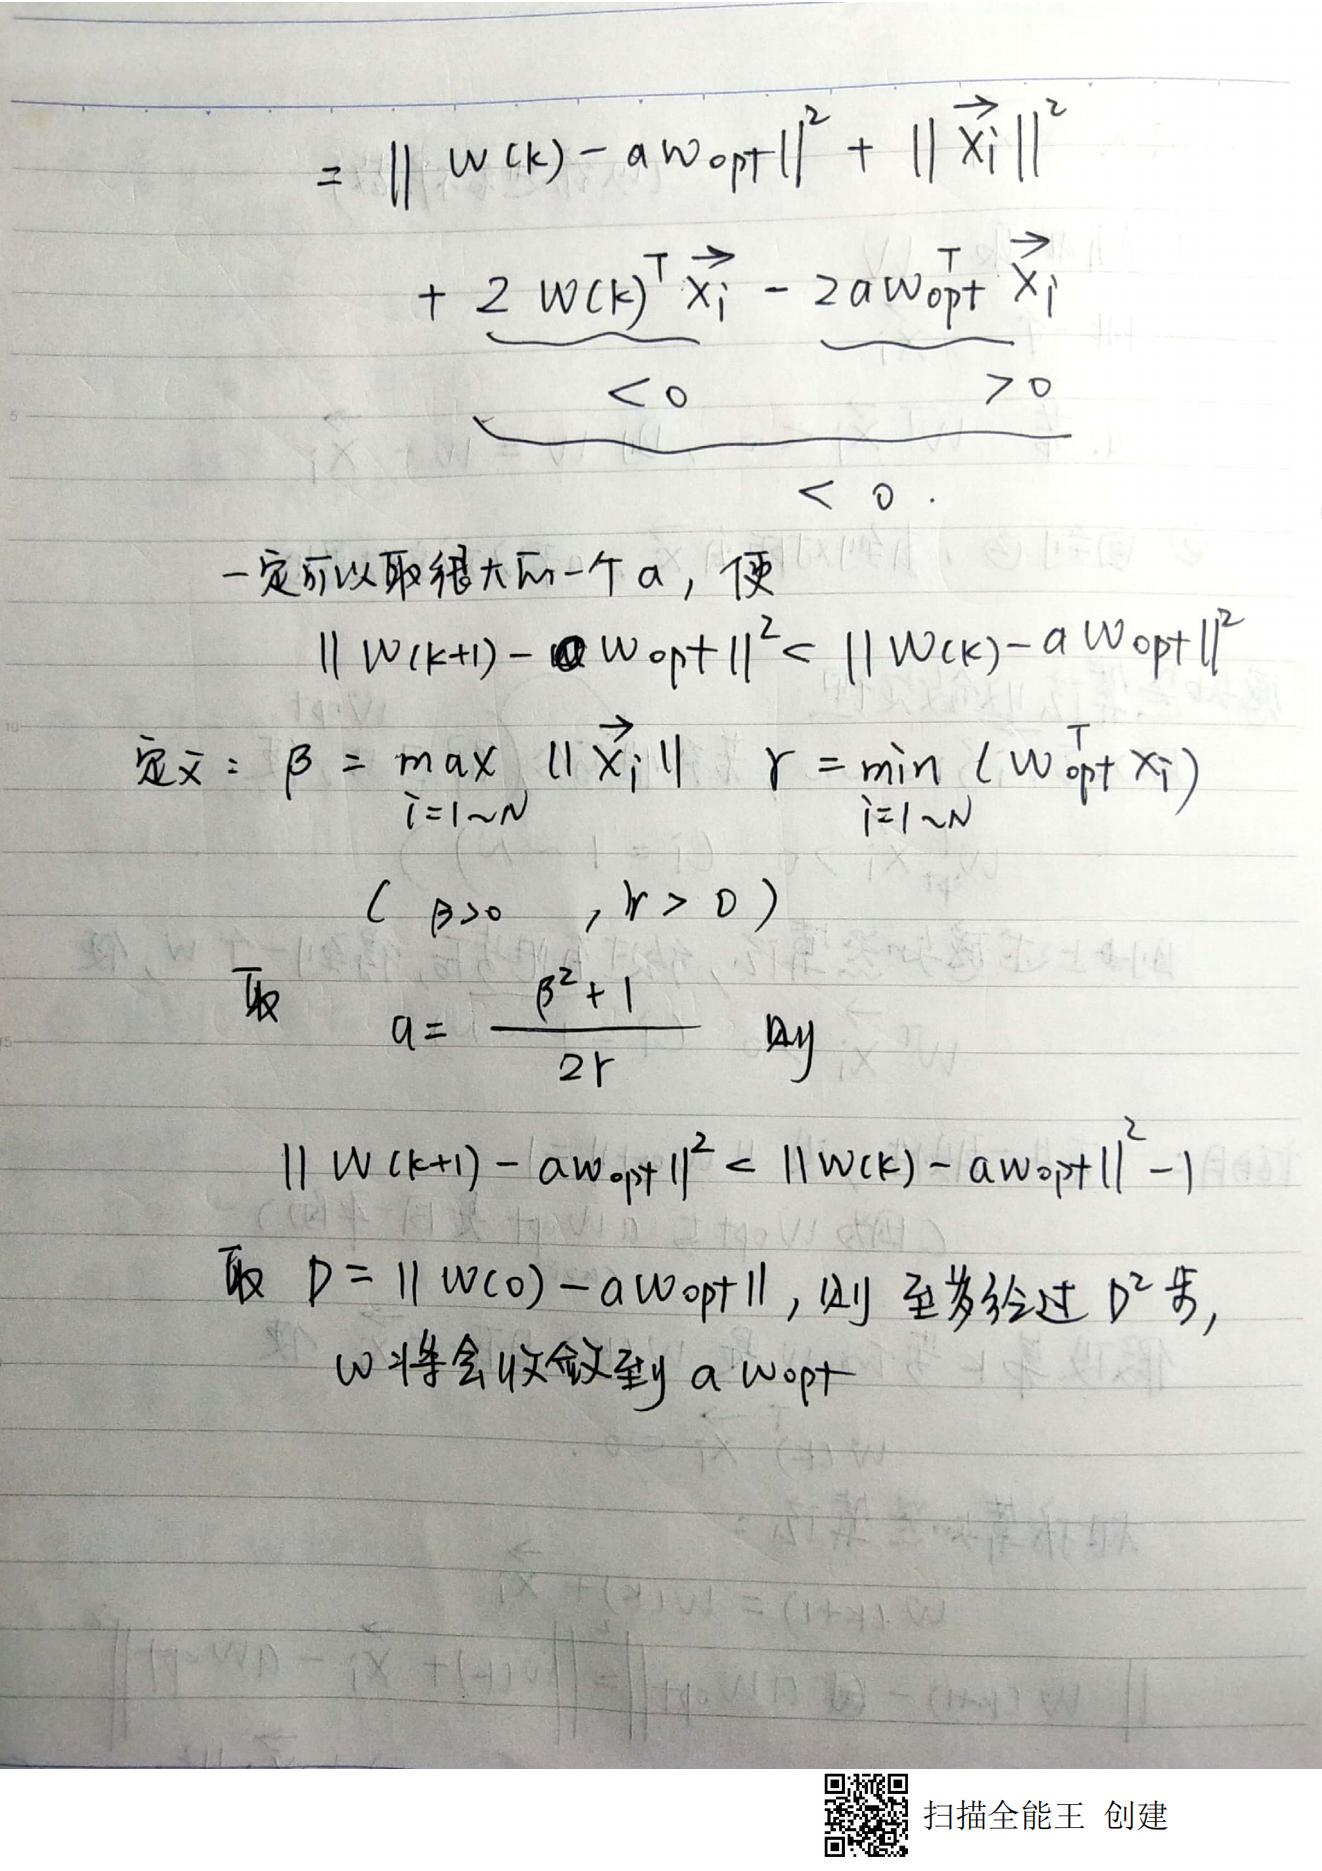 = || W(k) - aWopt||² + ||X⃗i||²
+ 2 W(k)ᵀX⃗i - 2aWoptᵀX⃗i
<0 >0
< 0 .
一定可以取很大的一个a, 使
|| W(k+1) - aWopt||² < || W(k) - aWopt||²
定义: β = max ||X⃗i|| γ = min (Woptᵀ Xi)
i=1~N i=1~N
( β>0 , γ > 0 )
取 a = (β²+1)/2γ 则
|| W(k+1) - aWopt||² < ||W(k) - aWopt||² - 1
取 D = || W(0) - aWopt||, 则 至多经过 D² 步,
W 将会收敛到 a Wopt
扫描全能王 创建